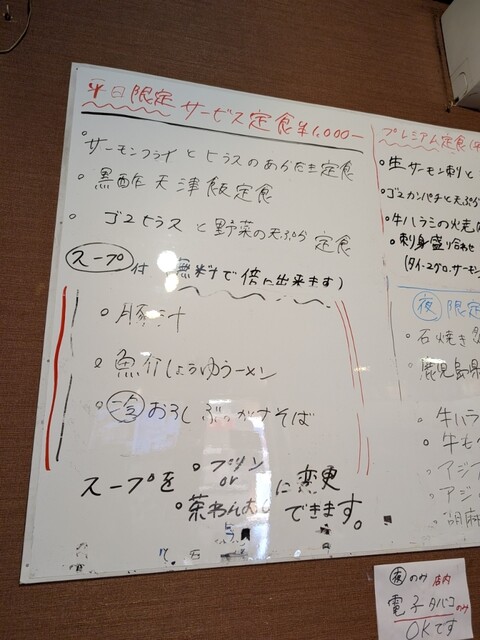 平日限定 サービス定食 ¥1,000-
・サーモンフライとヒラスのあらだき定食
・黒酢天津飯定食
・ゴマヒラスと野菜の天ぷら定食
スープ付 無料で倍に出来ます)
○豚汁
○魚介しょうゆラーメン
○冷おろしぶっかけそば
スープを
○プリン
or
・茶わんむし
に変更できます。
プレミアム定食(平
・生サーモン刺と
・ゴマカンパチと天ぷら
・牛ハラミの焼肉
・刺身盛り合わせ
(タイ・マグロ・サーモン
夜限定
・石焼き
・鹿児島県
・牛ハラ
・牛も
・アジ
・アジ
・胡麻
夜のみ 店内
電子タバコのみ
OKです